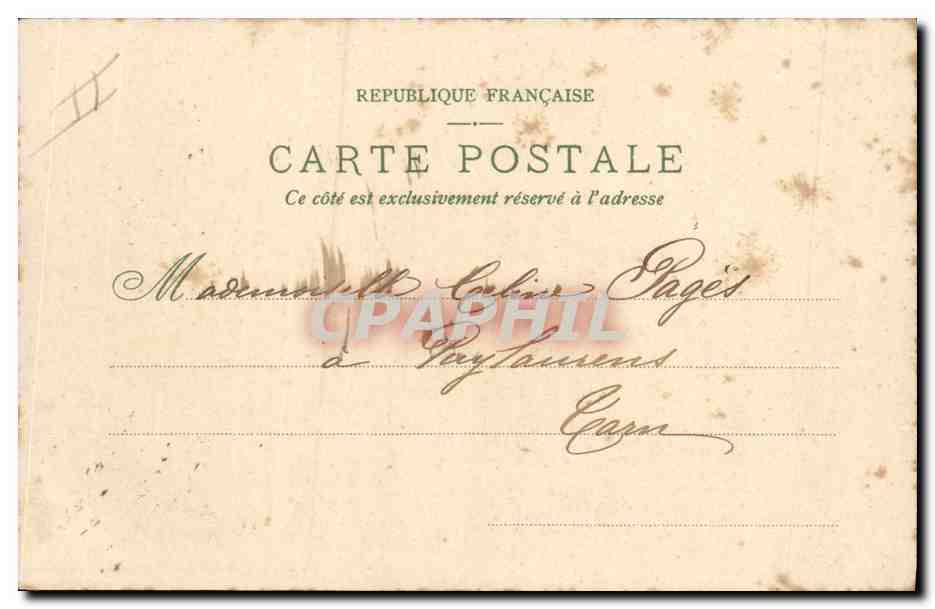 II
REPUBLIQUE FRANÇAISE
CARTE POSTALE
Ce côté est exclusivement réservé à l'adresse
Mademoiselle Celine Pagès
CPAPHIL
à Puylaurens
Tarn